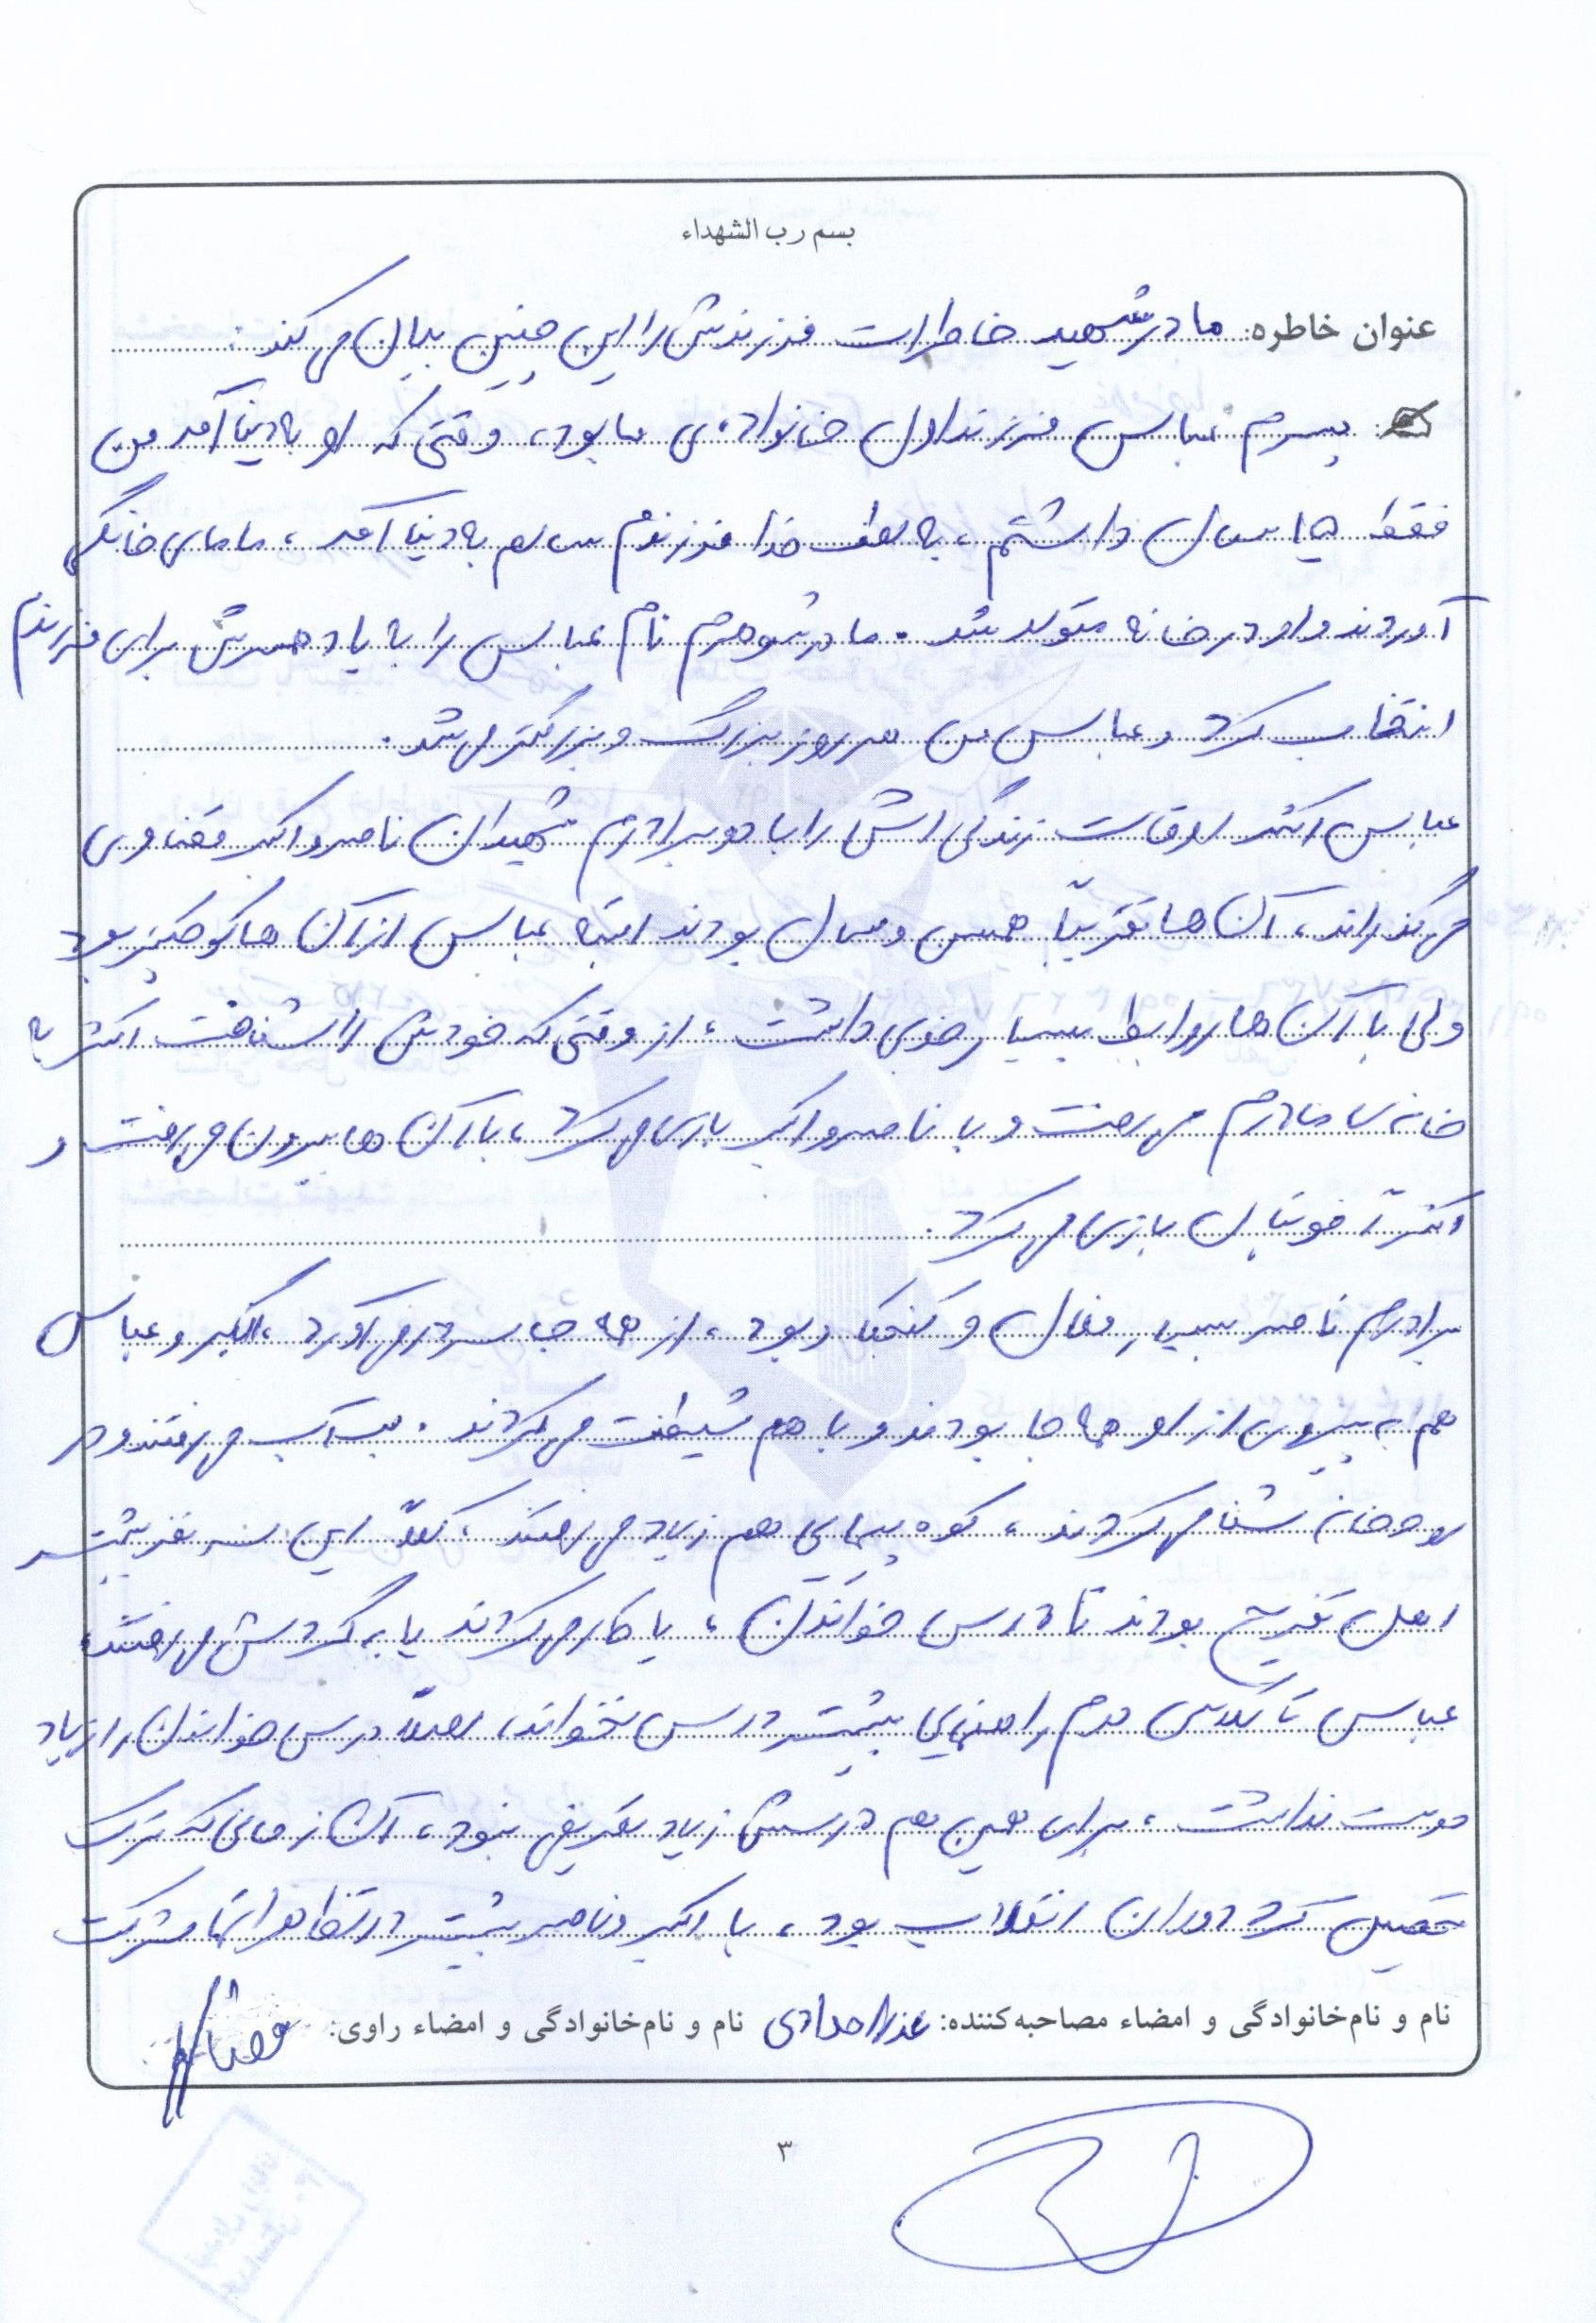 بسم رب الشهداء
عنوان خاطره: مادر شهید خاطرات فرزندش را این چنین بیان می کند:
پسرم عباس فرزند اول خانواده ی ما بود، وقتی که او به دنیا آمد من
فقط ۱۵ سال داشتم، به لطف خدا فرزندم سالم به دنیا آمد، مامای خانگی
آوردند و او در خانه متولد شد. مادر شوهرم نام عباس را به یاد همسرش برای فرزندم
انتخاب کرد و عباس من هر روز بزرگ و بزرگتر می شد.
عباس اکثر اوقات زندگی اش را با دو برادرم شهیدان ناصر و اکبر قضاوی
می گذراند، آن ها تقریباً همسن و سال بودند البته عباس از آن ها کوچکتر بود
ولی با آن ها روابط بسیار خوبی داشت، از وقتی که خودش را شناخت اکثر به
خانه ی مادرم می رفت و با ناصر و اکبر بازی می کرد، با آن ها بیرون می رفت و
اکثراً فوتبال بازی می کرد.
برادرم ناصر بسیار فعال و کنجکاو بود، از همه جا سر در می آورد، اکبر و عباس
هم به پیروی از او همه جا بودند و با هم شیطنت می کردند. لب آب می رفتند و در
رودخانه شنا می کردند، کوه پیمایی هم زیاد می رفتند، کلاً این سه نفر بیشتر
اهل تفریح بودند تا درس خواندن، یا کار می کردند یا به گردش می رفتند،
عباس تا کلاس دوم راهنمایی بیشتر درس نخواند، اصلاً درس خواندن را زیاد
دوست نداشت، برای همین هم درسش زیاد تعریفی نبود، آن زمانی که ترک
تحصیل کرد دوران انقلاب بود، با اکبر و ناصر بیشتر در تظاهرات شرکت
نام و نام خانوادگی و امضاء مصاحبه کننده: عذرا حدادی نام و نام خانوادگی و امضاء راوی:
۳